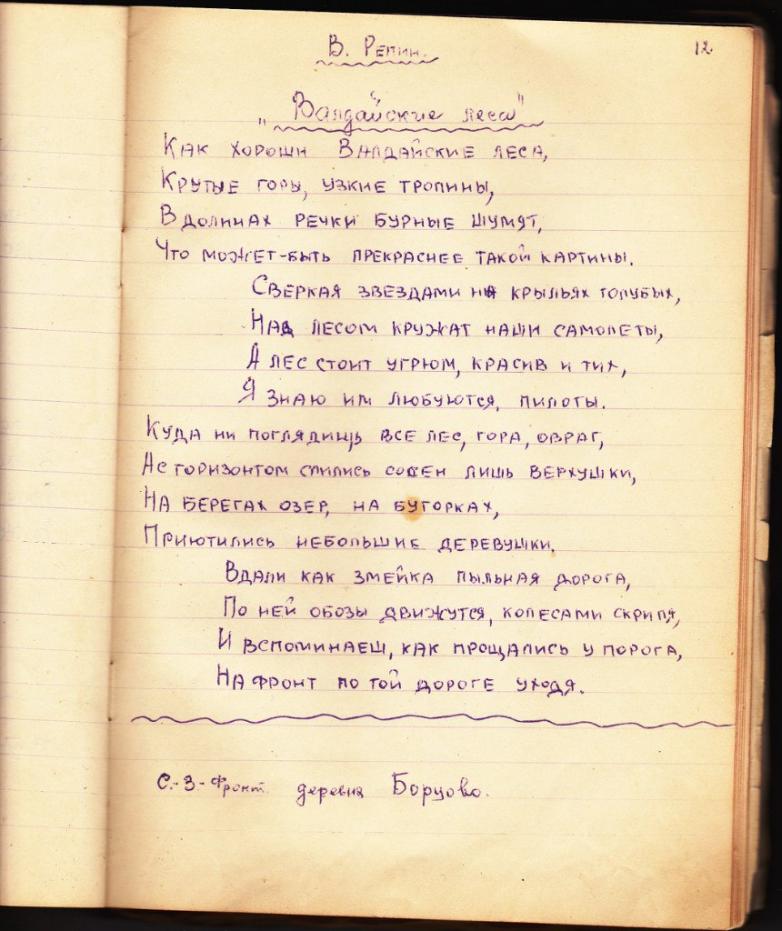 В. Репин.
12
"Валдайские леса"
Как хороши Валдайские леса,
Крутые горы, узкие тропины,
В долинах речки бурные шумят,
Что может-быть прекраснее такой картины.
Сверкая звездами на крыльях голубых,
Над лесом кружат наши самолеты,
А лес стоит угрюм, красив и тих,
Я знаю им любуются, пилоты.
Куда ни поглядишь все лес, гора, овраг,
А с горизонтом слились сосен лишь верхушки,
На берегах озер, на бугорках,
Приютились небольшие деревушки.
Вдали как змейка пыльная дорога,
По ней обозы движутся, колесами скрипя,
И вспоминаеш, как прощались у порога,
На фронт по той дороге уходя.
С.-З-Фронт. деревня Борцово.